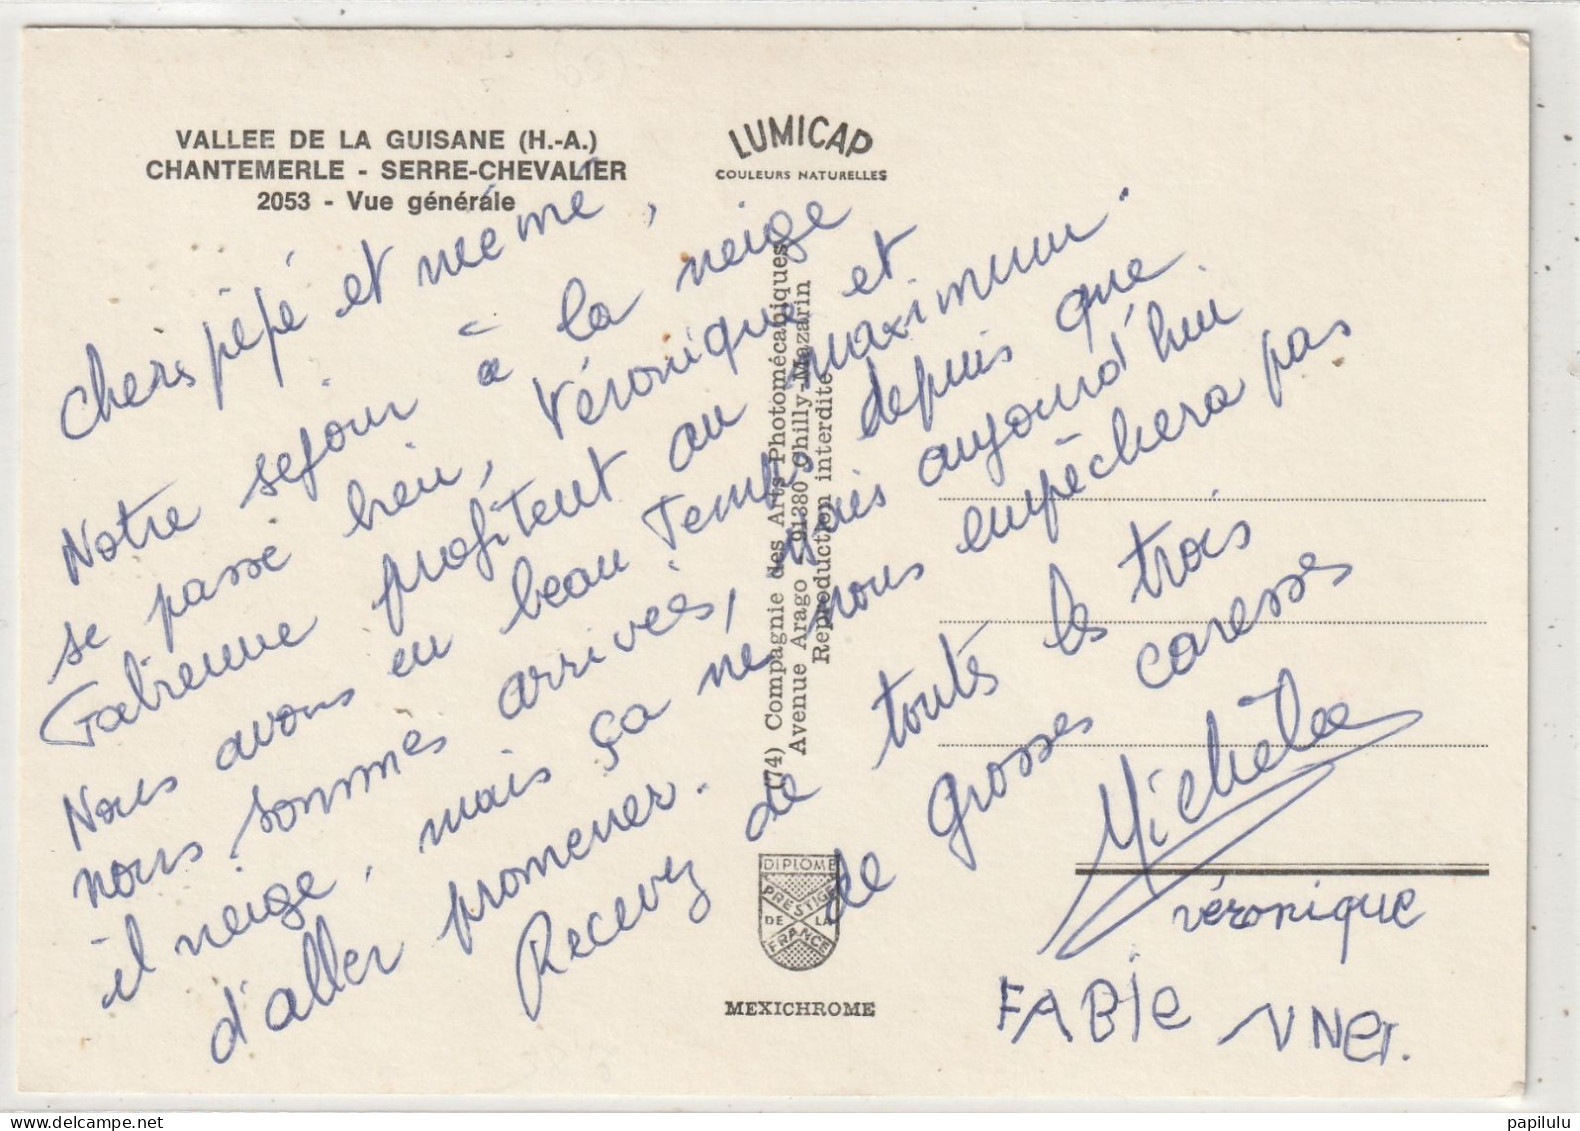 VALLEE DE LA GUISANE (H.-A.)
CHANTEMERLE - SERRE-CHEVALIER
2053 - Vue générale
LUMICAP
COULEURS NATURELLES
Chers pépé et mémé,
Notre séjour à la neige
se passe bien, Véronique et
Fabienne profitent au maximum.
Nous avons eu beau temps depuis que
nous sommes arrivés, mais aujourd'hui
il neige, mais ça ne nous empêchera pas
d'aller promener.
Recevez de toutes les trois
de grosses caresses
Michèle
véronique
FABIE NNet.
(74) Compagnie des Arts Photomécaniques
Avenue Arago - 91380 Chilly-Mazarin
Reproduction interdite
DIPLOME
PRESTIGE
DE LA
FRANCE
MEXICHROME
papilulu